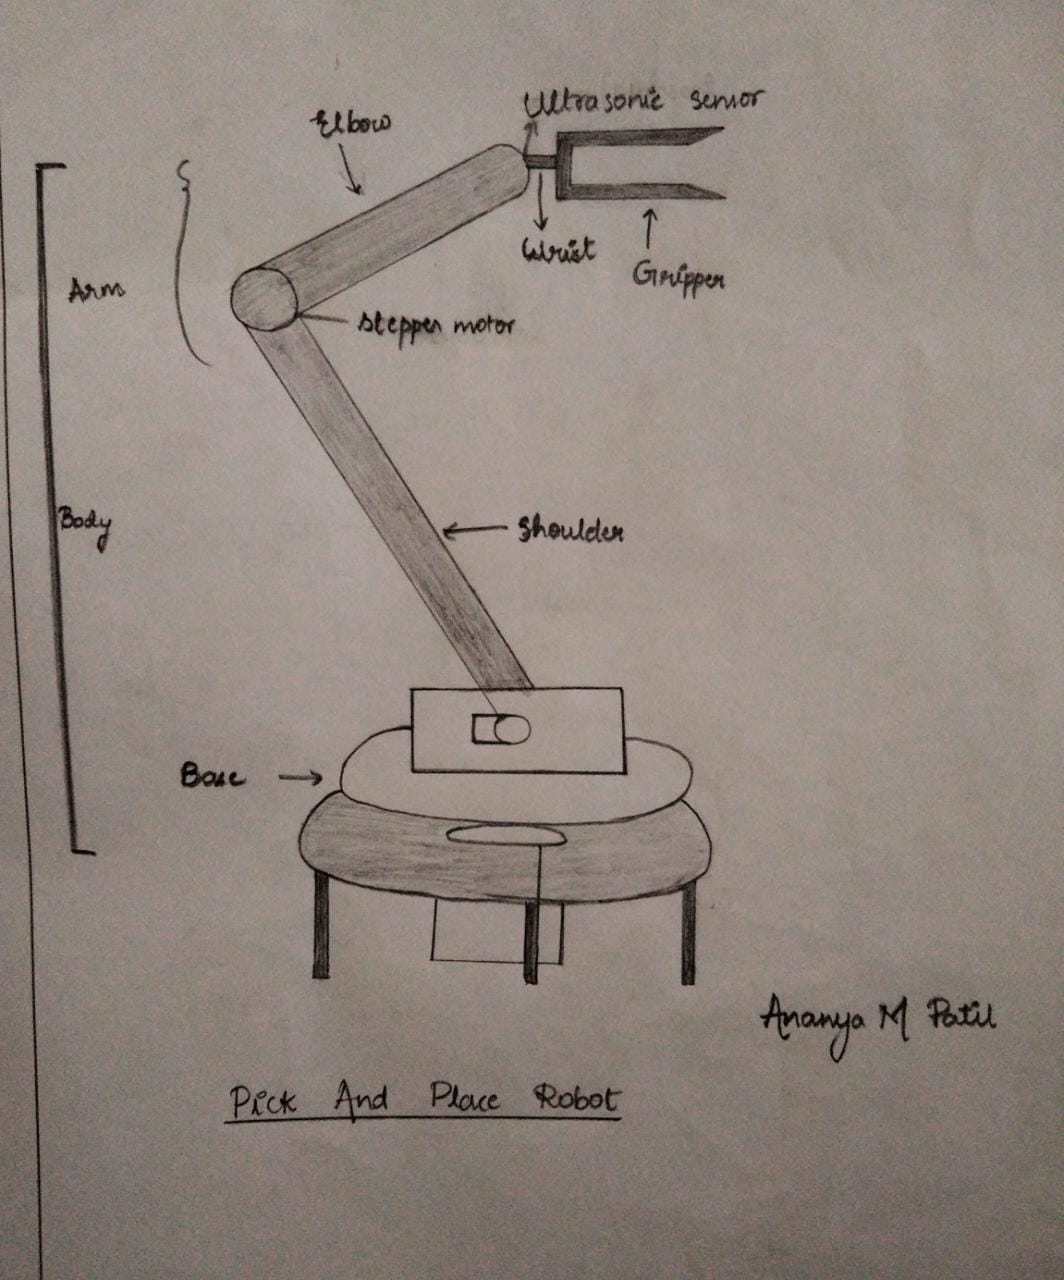 Ultrasonic sensor
Elbow
Wrist
Gripper
Arm
stepper motor
Body
Shoulder
Base
Ananya M Patil
Pick And Place Robot